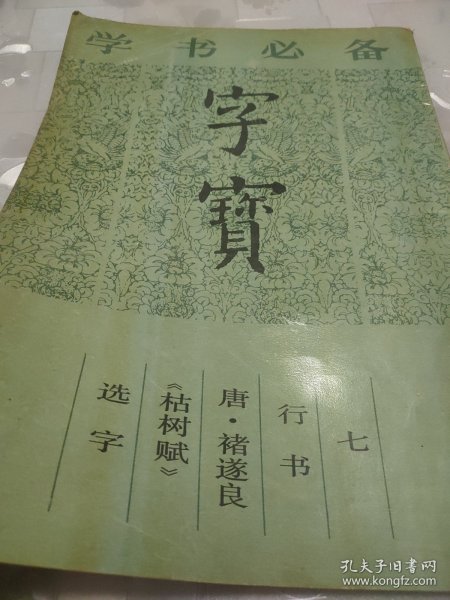 学书必备
字寶
七
行书
唐·褚遂良
《枯树赋》
选字
孔夫子旧书网
www.kongfz.com